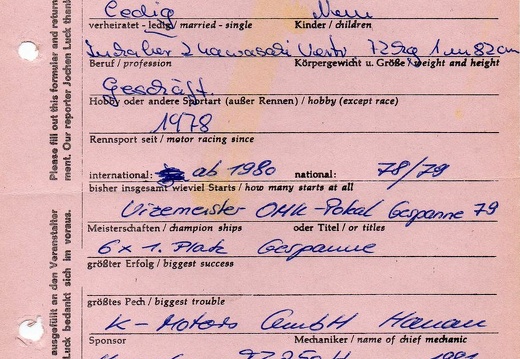 Ledig Nein
verheiratet - ledig / married - single Kinder / children
Inhaber 72kg 1m82cm
Beruf / profession Körpergewicht u. Größe / weight and height
Geschäft.
Hobby oder andere Sportart (außer Rennen) / hobby (except race)
1978
Rennsport seit / motor racing since
international: ab 1980 national: 78/79
bisher insgesamt wieviel Starts / how many starts at all
Vizemeister OMK-Pokal Gespanne 79
Meisterschaften / champion ships oder Titel / or titles
6x 1. Platz Gespanne
größter Erfolg / biggest success
größtes Pech / biggest trouble
K-Motors GmbH Hanau
Sponsor Mechaniker / name of chief mechanic
Please fill out this formuler and return
ment. Our reporter Jochen Luck thank
ausgefüllt an den Veranstalter
Luck bedankt sich im voraus.